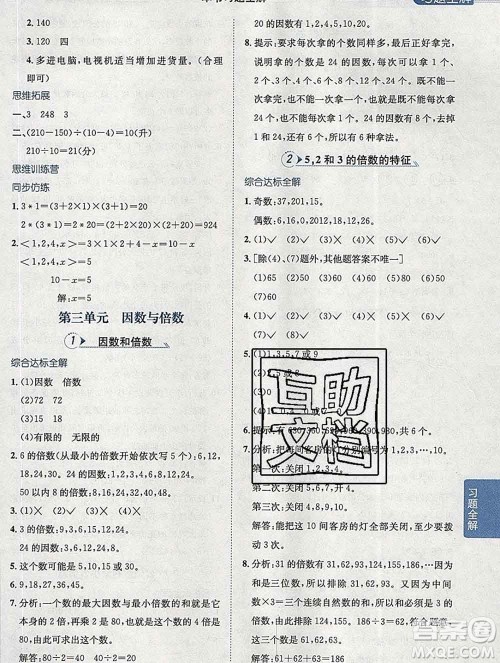 2. 140 四
3. 多进电脑,电视机适当增加进货量。(合理
即可)
思维拓展
一、3 248 3
二、(210-150)÷(10-4)=10(分)
210÷10=21(分)
思维训练营
同步仿练
1. 3*1=(3+2×1)×(3×1)=15
2*3=(2+2×3)×(2×3)
2. <1,2,4,x>=1+2×2+4-x
10-x=5
解:x=5
第三单元 因数与倍数
1 因数和倍数
综合达标全解
1. (1)因数 倍数
(2)72 72
(3)15 18
(4)有限的 无限的
2. 6的倍数(从最小的倍数开始依次写5个):6,
12,18,24,30。24的因数:1,2,3,4,6,8,12,24。
50以内8的倍数:8,16,24,32,40,48。
3. (1)× (2)× (3)× (4)√
4. 1,2,3,4,6,8,9,12,24。
5. 这个数可能是6,12,18,24,48。
6. 9,18,27,45。
7. 分析:一个数的最大因数与最小倍数的和等于
这个数的2倍,所以这个数=80÷2=40。
解答:80÷2=40
20的因数有1,2,4,5,10,20。
8. 提示:要求每次拿的个数同样多,最后又正好拿
完,说明每次拿的个数是24的因数,只要找出
24的因数就可以了。24的因数有1,2,3,4,6,8,
12,24,因为不能一次拿完,也不能一个一个地
拿,所以不能一次拿1个和24个,在因数中去掉
1和24还剩6个因数,所以有6种拿法。
2 5,2和3的倍数的特征
综合达标全解
1. 奇数:37,201,15。
偶数:6,16,0,2012,18,12,26。
2. (1)√ (2)√ (3)√ (4)√
3. [除(4)、(7)题外,其他题答案不唯一]
(1)65 (2)50 (3)60 (4)30
(5)60 (6)12 (7)90
4. (1)√ (2)× (3)√ (4)× (5)× (6)√
(7)× (8)√
5. (1)1,3,5,7或9
互助
文档
7. 分析:把每间客房的灯分别编号为1,2,3,4,5,6,
第一次:关闭1,2,3,4。
第二次:关闭5,6,打开4。
解答:能把这10间客房的灯全部关闭,至少拨动
4次开关。
8. 分析:31的倍数有31,62,93,124,155,186,…因
为它是偶数,所以可排除31,93,155,…因为这个
数×3=三个连续自然数的和,所以排除124,
186,…只有61,62,63的和是186,符合题意。
解答:31的倍数有31,62,93,124,155,186,…
因为它是偶数,所以可以排除31,93,155,…
三个数分别为61,62,63,所以这个数是62。
习题全解